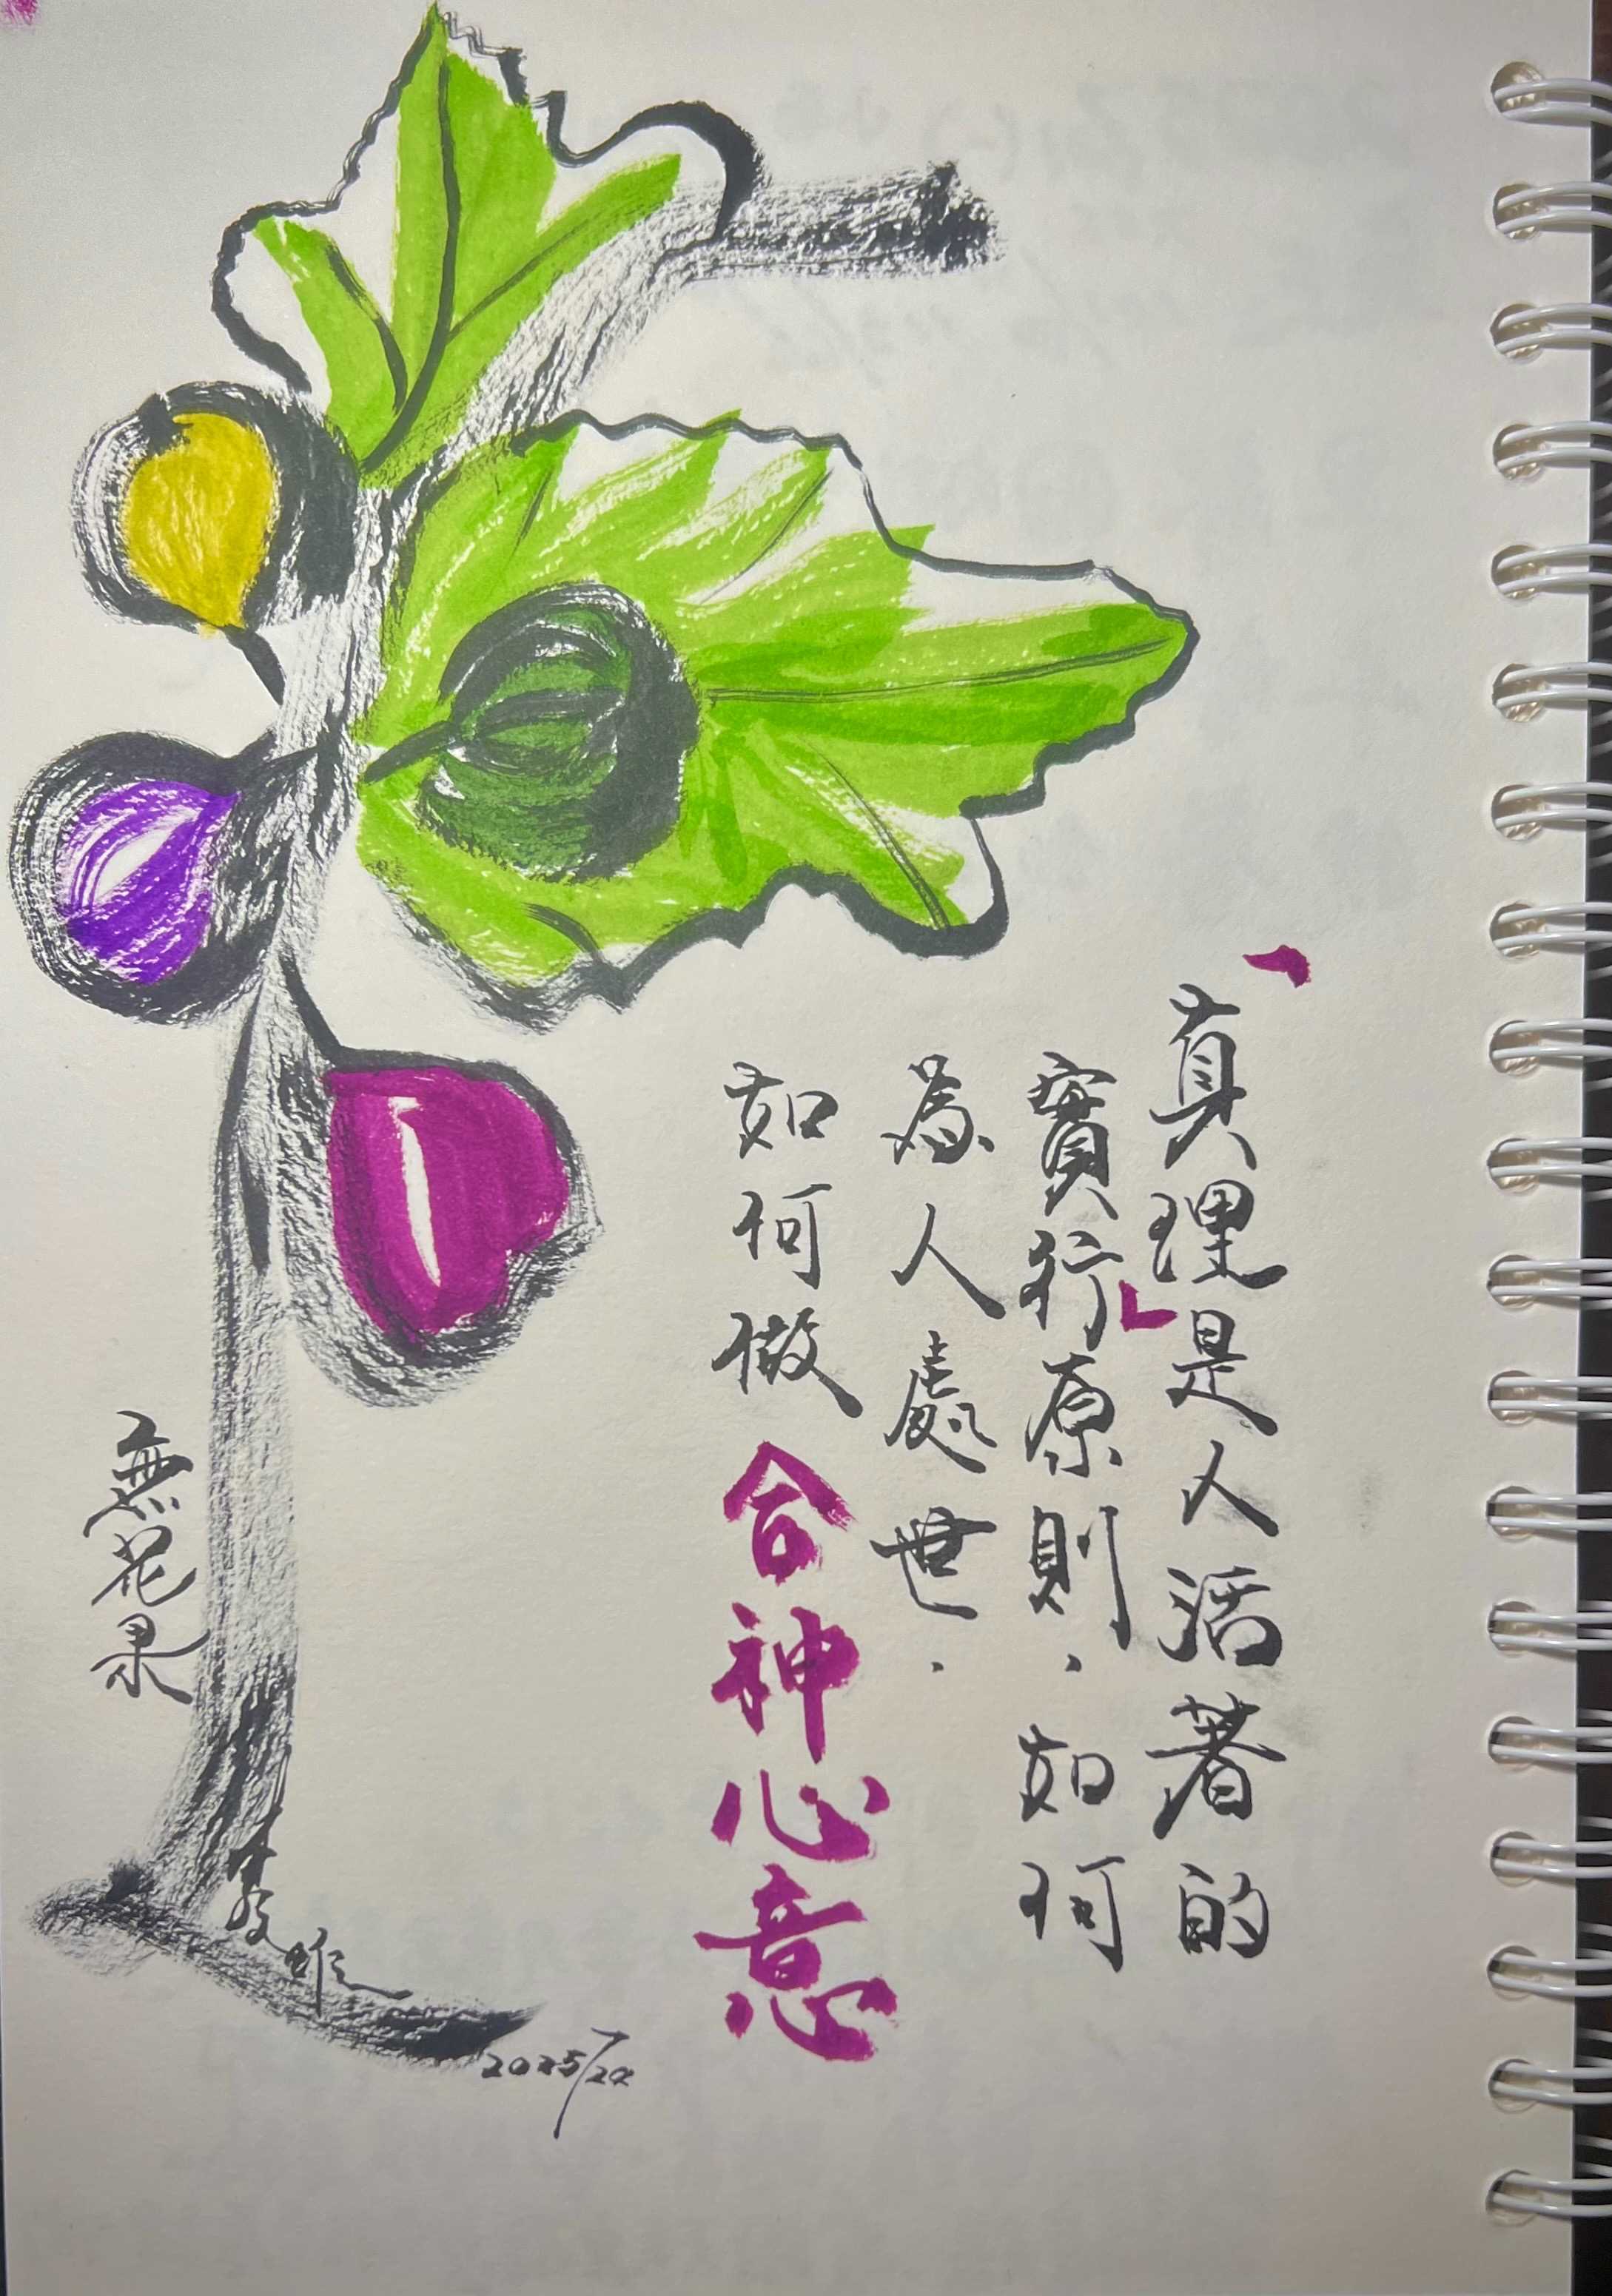 「真理」是人活著的
實行原則．如何
為人處世．
如何做合神心意
無花果
2025/7/22